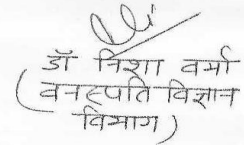 डॉ निशा वर्मा
(वनस्पति विज्ञान
विभाग)